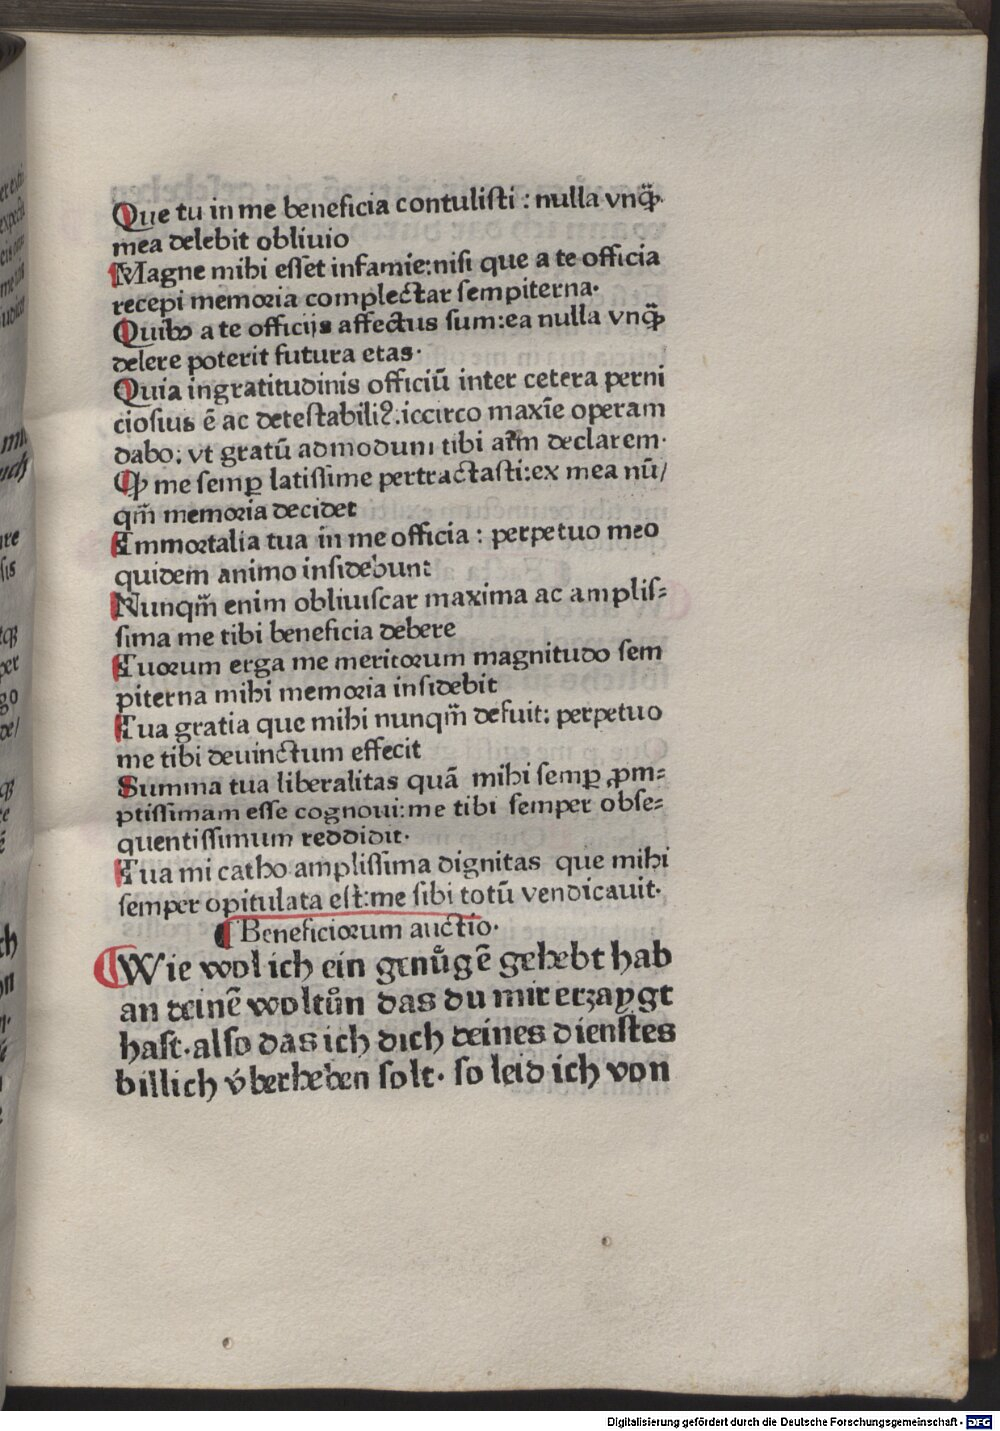 Que tu in me beneficia contulisti : nulla vnq̃ꝫ
mea delebit obliuio
Magne mihi esset infamie:nisi que a te officia
recepi memoria complectar sempiterna.
Quibꝰ a te officijs affectus sum:ea nulla vnq̃ꝫ
delere poterit futura etas.
Quia ingratitudinis officiū inter cetera perni
ciosius ē ac detestabiliꝰ.iccirco maxīe operam
dabo: vt gratū admodum tibi aīm declarem.
Ꝙ me semꝑ latissime pertractasti:ex mea nū/
qm̄ memoria decidet
Immortalia tua in me officia : perpetuo meo
quidem animo insidebunt
Nunqm̄ enim obliuiscar maxima ac amplis=
sima me tibi beneficia debere
Tuorum erga me meritorum magnitudo sem
piterna mihi memoria insidebit
Tua gratia que mihi nunqm̄ defuit: perpetuo
me tibi deuinctum effecit
Summa tua liberalitas quā mihi semꝑ ꝓm=
ptissimam esse cognoui:me tibi semper obse=
quentissimum reddidit.
Tua mi catho amplissima dignitas que mihi
semper opitulata est:me sibi totū vendicauit.
¶ Beneficiorum auctio.
Wie wol ich ein genůgē gehebt hab
an deinē woltůn das du mir erzaygt
hast.also das ich dich deines dienstes
billich v́berheben solt. so leid ich von
Digitalisierung gefördert durch die Deutsche Forschungsgemeinschaft - DFG